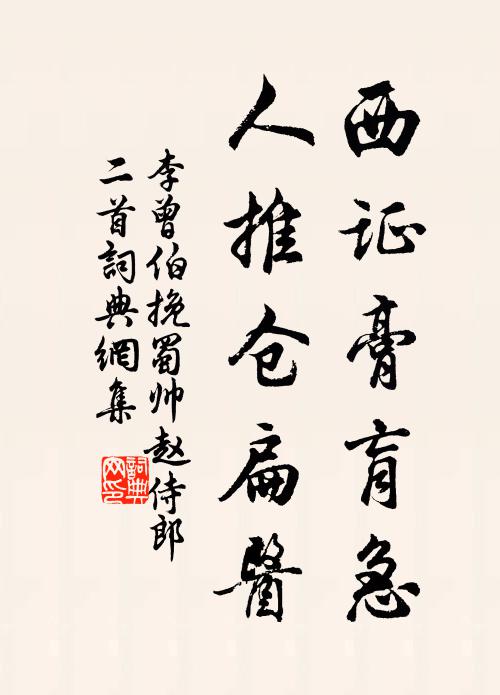 西证膏肓急
人推仓扁醫
李曾伯挽蜀帅赵侍郎
二首詞典網集
詞典
网印